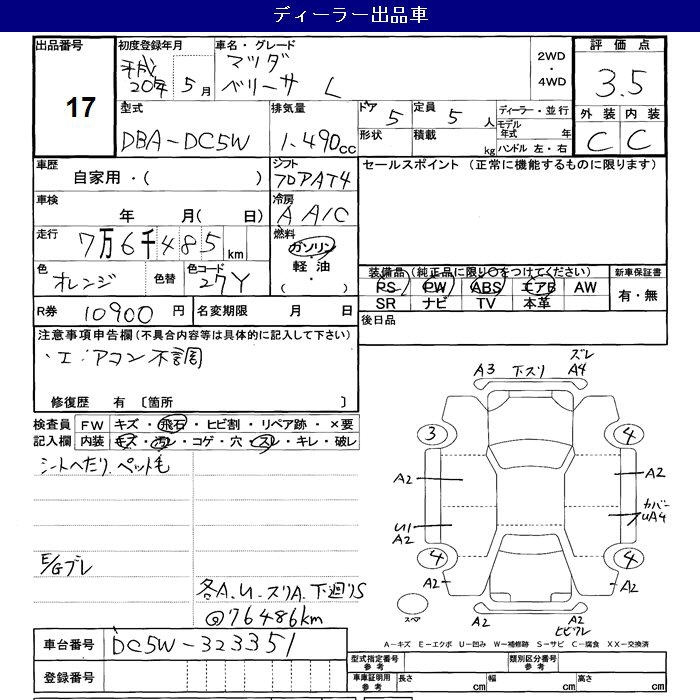 ディーラー出品車
出品番号 17
初度登録年月 平成20年5月
車名・グレード マツダ ベリーサ L
2WD ・ 4WD
評価点 3.5
外装 内装
C C
型式 DBA-DC5W
排気量 1.490cc
ドア 5 形状
定員 5人 積載 kg
ディーラー・並行
モデル年式 年
ハンドル 左・右
車歴 自家用・( )
シフト フロアAT4
セールスポイント (正常に機能するものに限ります)
車検 年 月( 日)
冷房 A A/C
走行 7万6千485km
燃料 ガソリン ・軽油 ・( )
色 オレンジ 色替 色コード 27Y
装備品(純正品に限り○をつけてください)
PS PW ABS エアB AW
SR ナビ TV 本革
新車保証書 有・無
R券 10900円
名変期限 月 日
後日品
注意事項申告欄(不具合内容等は具体的に記入して下さい)
・エアコン不調
修復歴 有 〔箇所 〕
検査員記入欄
FW キズ・飛石・ヒビ割・リペア跡・×要
内装 キズ・汚レ・コゲ・穴・スレ・キレ・破レ
シートヘたり、ペット毛
E/Gブレ
各A.U.スリA.下廻りS
@76486km
A3 下スリ ズレ A4
3 4
A2 A2
U1 A2
カバー UA4
4 4
A2 A2
スペア
A2 A2
ヒビワレ
A-キズ E-エクボ U-凹み W-補修跡 S-サビ C-腐食 XX-交換済
車台番号 DC5W-323351
登録番号
型式指定番号 参考
類別区分番号 参考
車庫証明用 参考 長さ cm 幅 cm 高さ cm